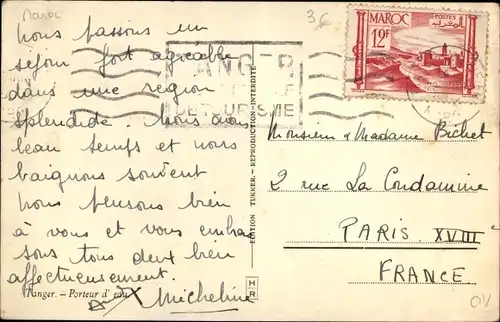 Maroc
3€
Nous passons un
sejour fort agréable
dans une region
splendide. Nous avons
beau temps et nous
baignons souvent
Nous pensons bien
à vous et vous embras
sons tous deux bien
affectueusement.
Micheline
Tanger. - Porteur d'eau
EDITION TUKKER. - REPRODUCTION INTERDITE
HR
TANGER
DE TOURISME
MAROC
POSTES
12F
Monsieur & Madame Bichet
2 rue La Condamine
PARIS XVIII
FRANCE